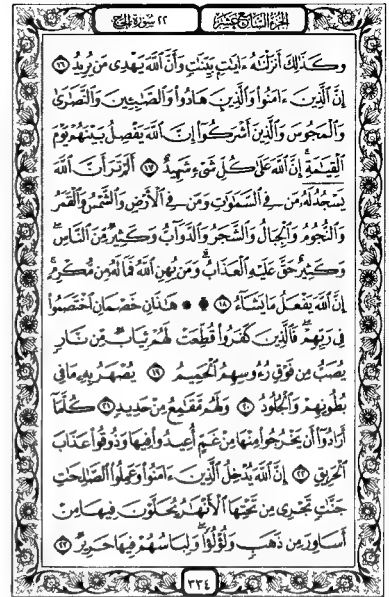 الجزء السابع عشر
٢٢ سورة الحج
وَكَذَٰلِكَ أَنزَلْنَٰهُ ءَايَٰتٍۭ بَيِّنَٰتٍ وَأَنَّ ٱللَّهَ يَهْدِى مَن يُرِيدُ ١٦
إِنَّ ٱلَّذِينَ ءَامَنُوا۟ وَٱلَّذِينَ هَادُوا۟ وَٱلصَّٰبِـِٔينَ وَٱلنَّصَٰرَىٰ
وَٱلْمَجُوسَ وَٱلَّذِينَ أَشْرَكُوٓا۟ إِنَّ ٱللَّهَ يَفْصِلُ بَيْنَهُمْ يَوْمَ
ٱلْقِيَٰمَةِ ۚ إِنَّ ٱللَّهَ عَلَىٰ كُلِّ شَىْءٍ شَهِيدٌ ١٧ أَلَمْ تَرَ أَنَّ ٱللَّهَ
يَسْجُدُ لَهُۥ مَن فِى ٱلسَّمَٰوَٰتِ وَمَن فِى ٱلْأَرْضِ وَٱلشَّمْسُ وَٱلْقَمَرُ
وَٱلنُّجُومُ وَٱلْجِبَالُ وَٱلشَّجَرُ وَٱلدَّوَآبُّ وَكَثِيرٌ مِّنَ ٱلنَّاسِ ۖ
وَكَثِيرٌ حَقَّ عَلَيْهِ ٱلْعَذَابُ ۗ وَمَن يُهِنِ ٱللَّهُ فَمَا لَهُۥ مِن مُّكْرِمٍ ۚ
إِنَّ ٱللَّهَ يَفْعَلُ مَا يَشَآءُ ١٨ ۞ هَٰذَانِ خَصْمَانِ ٱخْتَصَمُوا۟
فِى رَبِّهِمْ ۖ فَٱلَّذِينَ كَفَرُوا۟ قُطِّعَتْ لَهُمْ ثِيَابٌ مِّن نَّارٍ
يُصَبُّ مِن فَوْقِ رُءُوسِهِمُ ٱلْحَمِيمُ ١٩ يُصْهَرُ بِهِۦ مَا فِى
بُطُونِهِمْ وَٱلْجُلُودُ ٢٠ وَلَهُم مَّقَٰمِعُ مِنْ حَدِيدٍ ٢١ كُلَّمَآ
أَرَادُوٓا۟ أَن يَخْرُجُوا۟ مِنْهَا مِنْ غَمٍّ أُعِيدُوا۟ فِيهَا وَذُوقُوا۟ عَذَابَ
ٱلْحَرِيقِ ٢٢ إِنَّ ٱللَّهَ يُدْخِلُ ٱلَّذِينَ ءَامَنُوا۟ وَعَمِلُوا۟ ٱلصَّٰلِحَٰتِ
جَنَّٰتٍ تَجْرِى مِن تَحْتِهَا ٱلْأَنْهَٰرُ يُحَلَّوْنَ فِيهَا مِنْ
أَسَاوِرَ مِن ذَهَبٍ وَلُؤْلُؤًا ۖ وَلِبَاسُهُمْ فِيهَا حَرِيرٌ ٢٣
٣٣٤